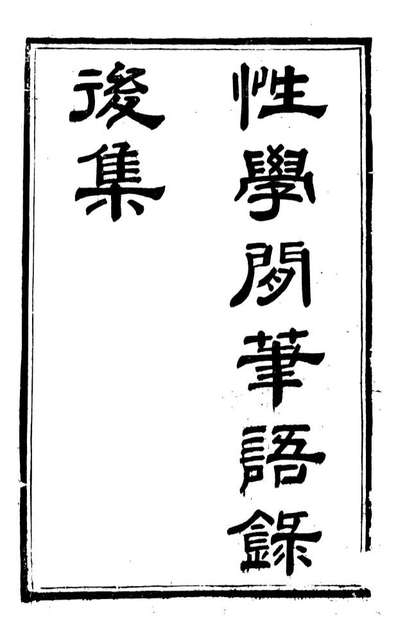 性學閒筆語錄
後集